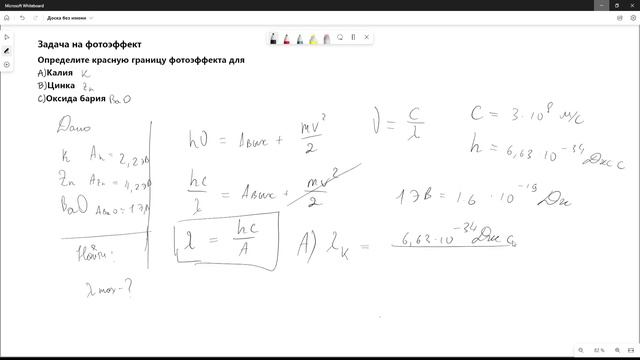 Microsoft Whiteboard
Доска без имени
Задача на фотоэффект
Определите красную границу фотоэффекта для
A)Калия K
B)Цинка Zn
C)Оксида бария BaO
Дано
K Aк = 2,2 эВ
Zn AZn = 4,2 эВ
BaO ABaO = 1 эВ
Найти:
λ max - ?
hν = Aвых + mv²/2
hc/λ = Aвых + mv²/2
λ = hc/A
ν = c/λ
C = 3·10⁸ м/с
h = 6,63·10⁻³⁴ Дж с
1 эВ = 1,6·10⁻¹⁹ Дж
A) λK = 6,63·10⁻³⁴ Дж с
82 %